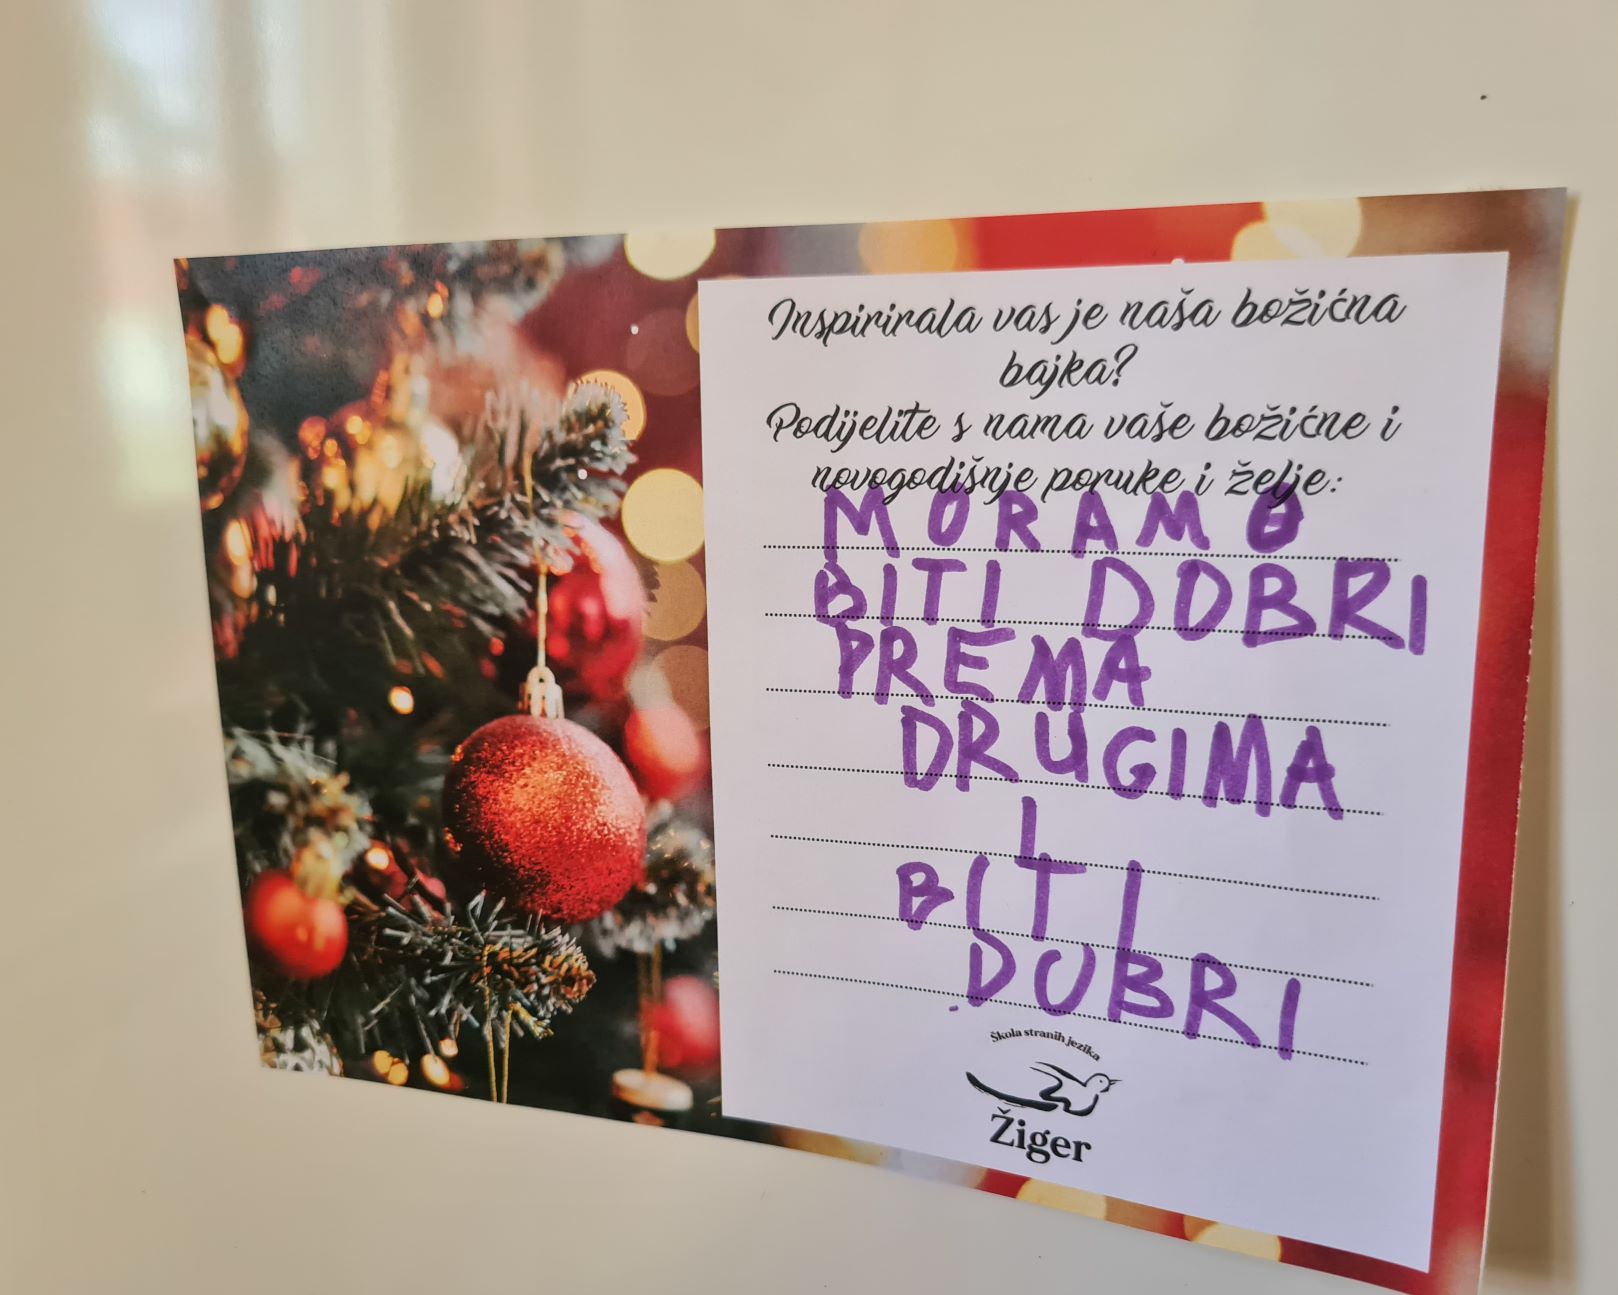 Inspirirala vas je naša božićna
bajka?
Podijelite s nama vaše božićne i
novogodišnje poruke i želje:
MORAMO
BITI DOBRI
PREMA
DRUGIMA
I
BITI
DOBRI
Škola stranih jezika
Žiger